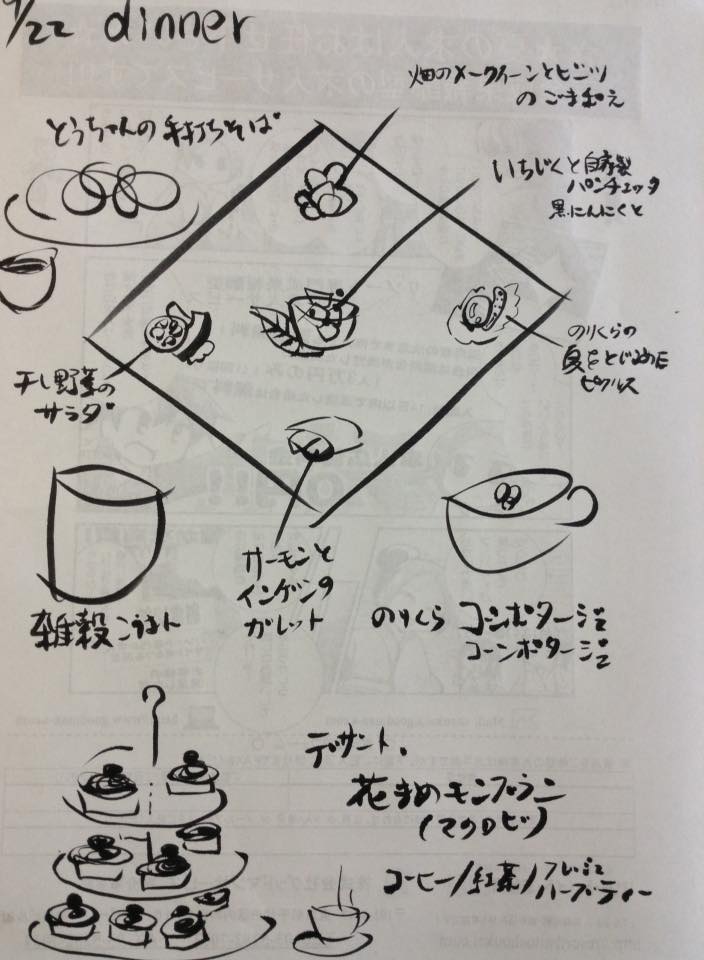 9/22 dinner
畑のメークイーンとヒヨコマメ
のごま和え
とうちゃんの手打ちそば
いちじくと自家製
パンチェッタ
黒にんにくと
のりくらの
夏をとじ込めた
ピクルス
干し野菜の
サラダ
サーモンと
インゲンの
ガレット
雑穀ごはん
のりくら コーンポタージュ
コーンポタージュ
デザート、
花まめモンブラン
(マクロビ)
コーヒー/紅茶/フレッシュ
ハーブティー